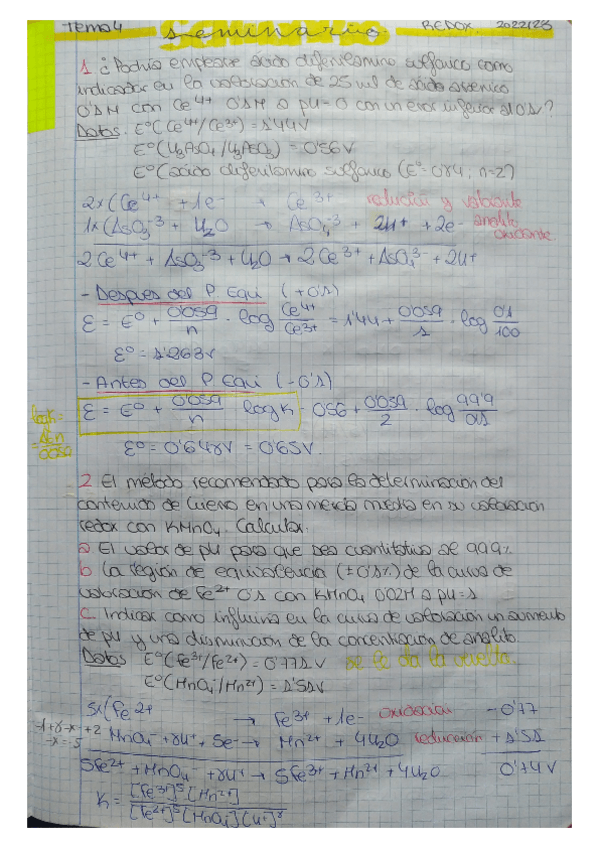 Tema 4 Seminario. REDOX. 2022/23
1 ¿Podría emplearse ácido difenilamino sulfónico como
indicador en la valoración de 25 ml de ácido arsenico
0'1M con Ce4+ 0'1M a pH=0 con un error inferior al 0'1?
Datos: Eº(Ce4+/Ce3+) = 1'44V
Eº(H3AsO4/H3AsO3) = 0'56V
Eº(ácido difenilamino sulfónico (Eº=0'84, n=2)
2x(Ce4+ + 1e- → Ce3+ reducción y valorante
1x(AsO3-3 + H2O → AsO4-3 + 2H+ + 2e- analito
oxidante
2Ce4+ + AsO3-3 + H2O → 2Ce3+ + AsO43- + 2H+
- Despues del P Equi (+0'1)
E = Eº + 0'059/n · log Ce4+/Ce3+ = 1'44 + 0'059/1 · log 0'1/100
Eº = 1'263V
- Antes del P Equi (-0'1)
log K = ΔEn/0'059
E = Eº + 0'059/n log K - 056 + 0'059/2 · log 99'9/0'1
Eº = 0'648V = 0'65V.
2 El método recomendado para la determinación del
contenido de hierro en una mezcla media en su valoración
redox con KMnO4. Calcular.
a El valor de pH para que sea cuantitativo al 99'9%
b La región de equivalencia (±0'1%) de la curva de
valoración de Fe2+ 0'1 con KMnO4 0'02M a pH=1
c. Indicar como influiría en la curva de valoración un aumento
de pH y una disminución de la concentración de analito.
Datos Eº(Fe3+/Fe2+) = 0'77V se le da la vuelta
Eº(MnO4-/Mn2+) = 1'51V
5x(Fe2+ → Fe3+ + 1e- oxidación - 0'77
-1+8-x=+2 MnO4- + 8H+ + 5e- → Mn2+ + 4H2O reducción + 1'51
-x=-5
5Fe2+ + MnO4- + 8H+ → 5Fe3+ + Mn2+ + 4H2O 0'74V
K = [Fe3+]5[Mn2+]
[Fe2+]5[MnO4-][H+]8